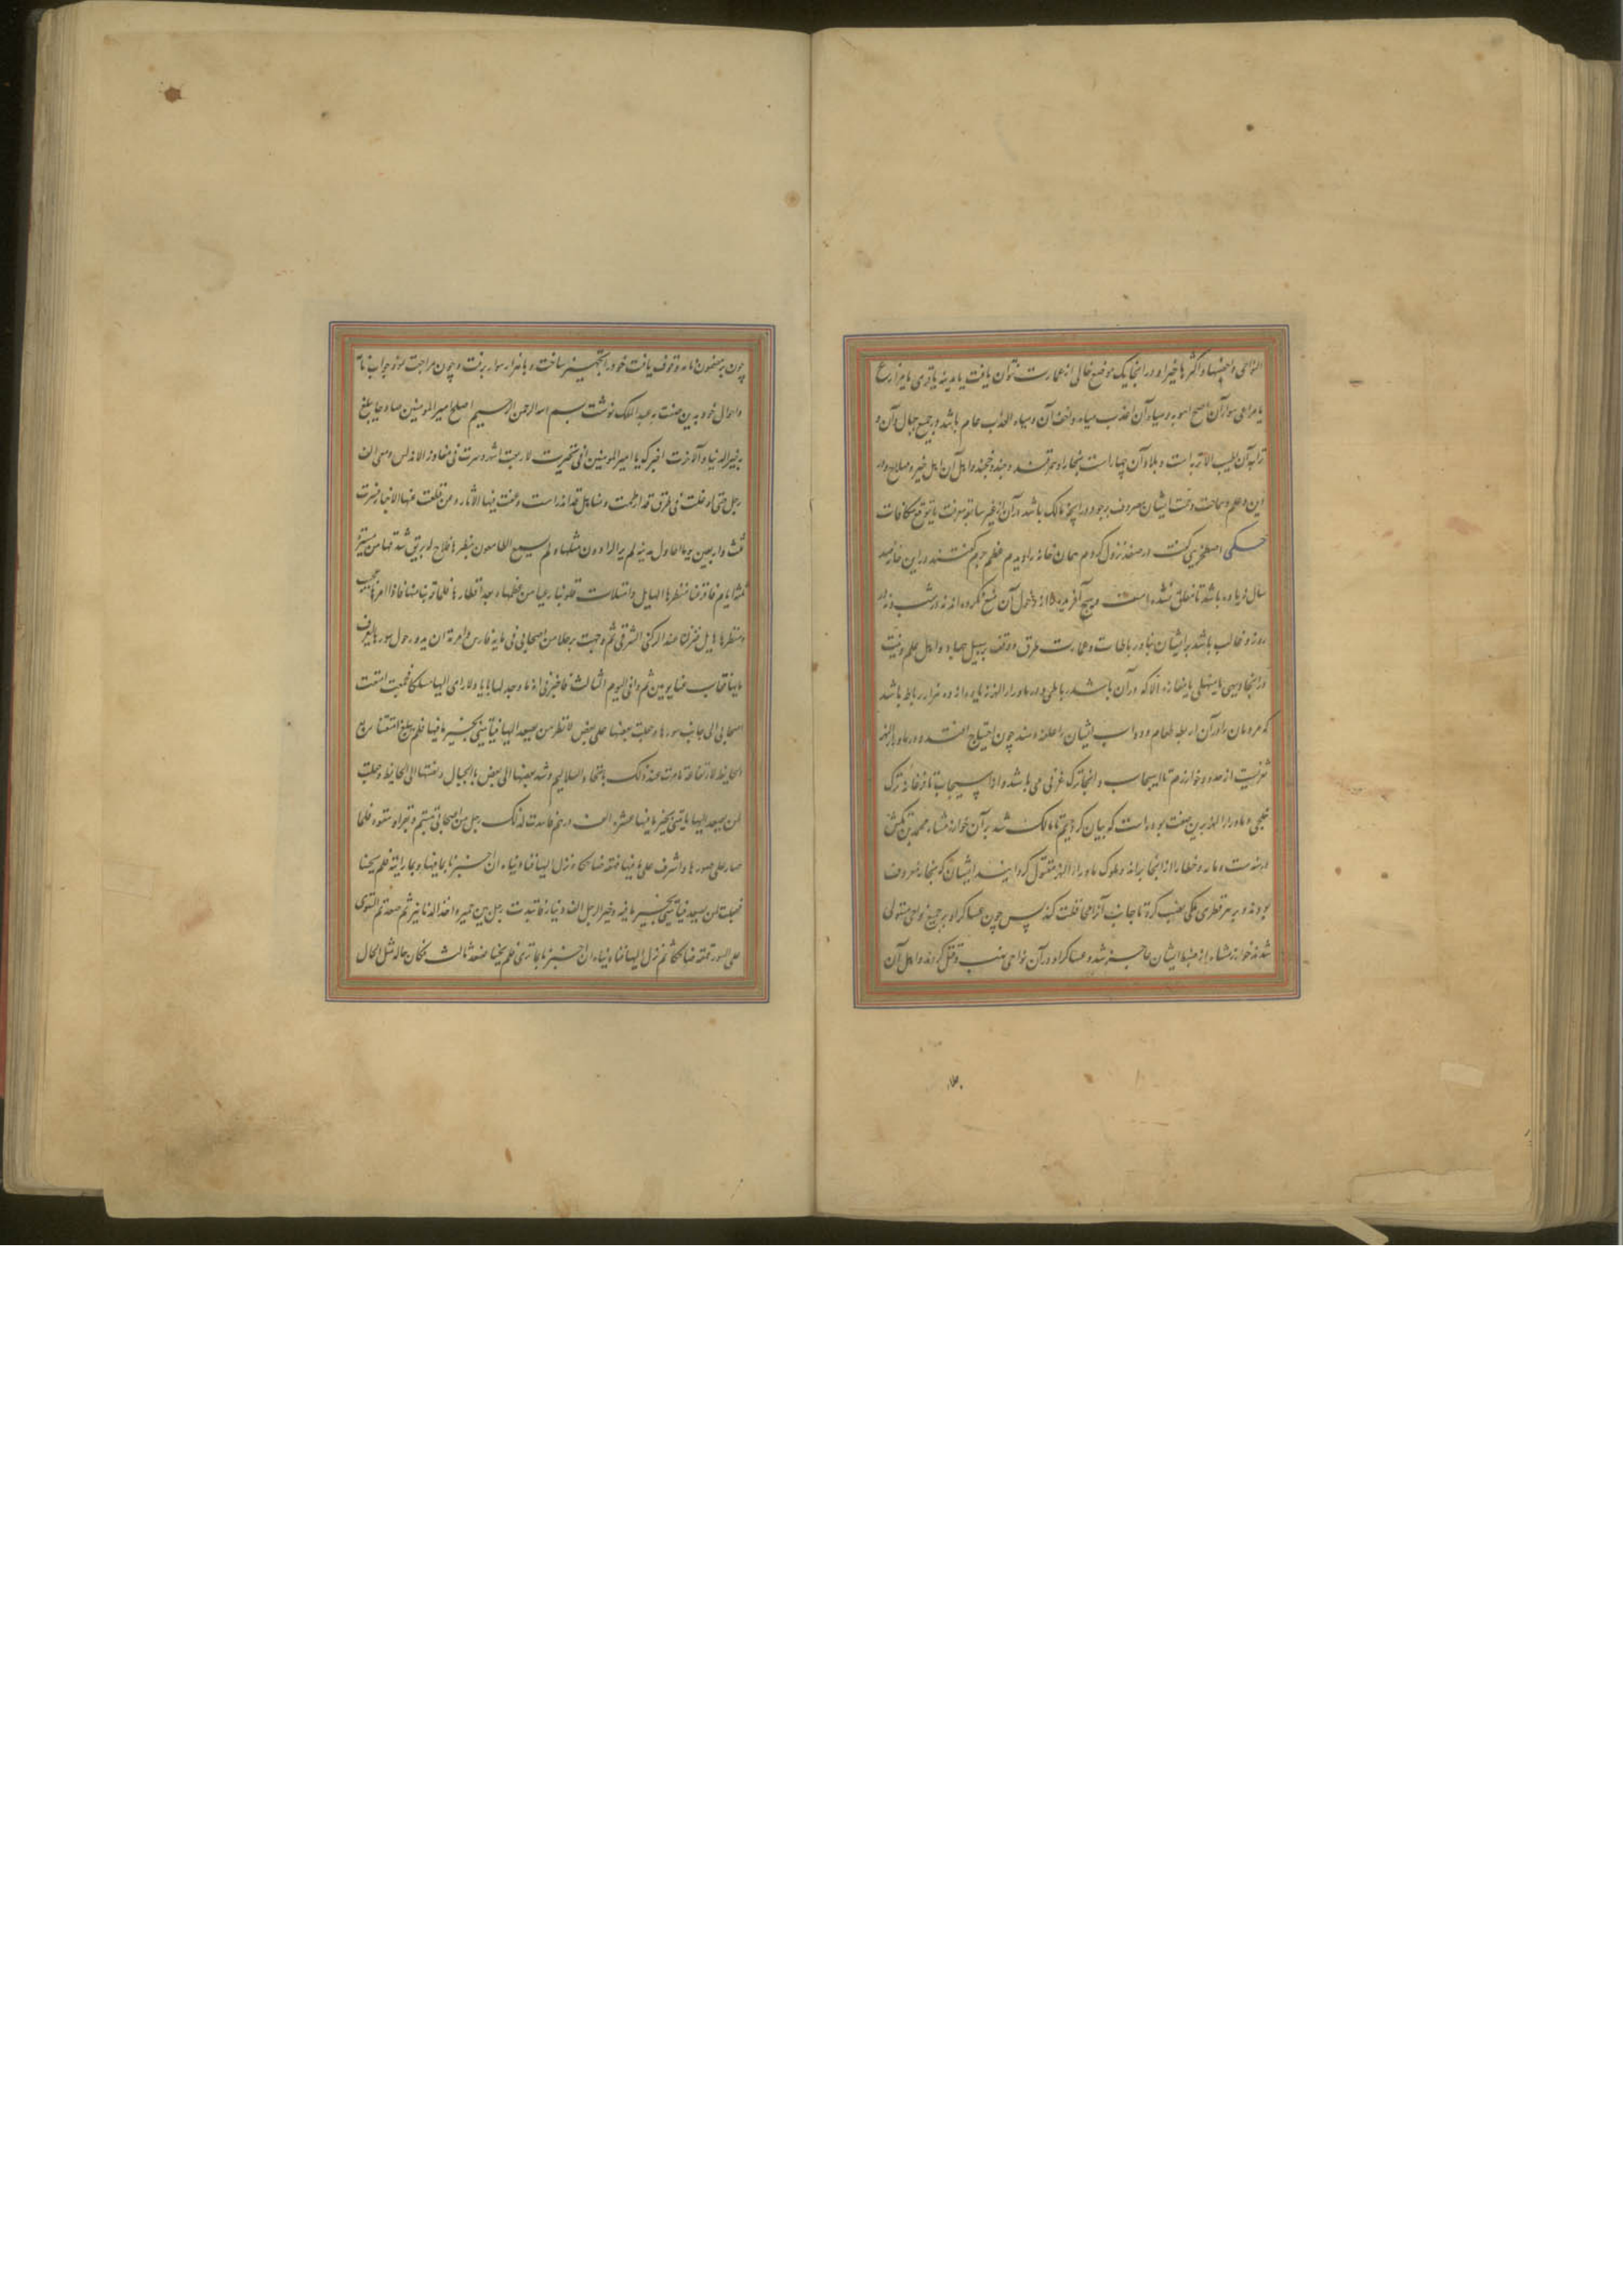 النواحی واخصبها واکثرها خیرا و در انجا یک موضع خالی از عمارت نتوان یافت یا مدینه یا قری یا مزارع
یا مراعی سوآرآن اصح اهویه و میاه آن اعذب میاه واخف آن و میاه العذب عام باشد در جمیع جبال آن و
تربه آن اطیب الاتربه است و بلاد آن بخارا و سمرقند و جند و خجند و اهل آن اهل خیر و صلاح و در
دین و علم و سماحت ایشان معروف بوجود در انچه مالک باشد درآن از غیر سابقه معرفت یا توقع مکافات
حکی اصطخری گفت در صغد نزول کردم همان خانه را دیدم گفتند در این خانه صد
سال زیاده باشد تا مغلق نشده است و هیچ آفریده را از دخول آن منع نکرده اند نه در شب و نه در
روز و غالب باشد بر ایشان بناء رباطات و عمارت طرق و وقف بر سبیل جهاد و اهل علم و نیست
در انجا دیهی یا منهلی یا مفازه الا که در آن باشد رباطی و در ماوراء النهر زیاده از ده هزار رباط باشد
که مردمان را در آن اربطه طعام و دواب ایشان را علف دهند چون احتیاج افتد و در ماوراء النهر
ثغریست از حدود خوارزم تا اسبیجاب و انجا ترک غزنی می باشد و از اسبیجاب تا فرغانه ترک
خلجی و ماوراء النهر برین صفت بوده است که بیان کردیم تا مالک شد برآن خوارزمشاه محمد بن تکش
و خطا را از انجا براند و ملوک ماوراء النهر مقتول گردانید ایشان که بنجاره معروف
بودند و بر هر قطری ملکی نصب کرده تا جانب آنرا محافظت کند پس چون عساکر او بر جمیع نواحی مستولی
شدند خوارزمشاه از ضبط ایشان عاجز شد و عساکر او در آن نواحی نهب و قتل کردند و اهل آن
چون بر مضمون نامه وقوف یافت خود را تجهیز ساخت و با هزار سوار برفت و چون مراجعت نمود جواب نامه
و احوال خود بدین صفت به عبد الملک نوشت بسم الله الرحمن الرحیم اصلح امیر المؤمنین صلاحا یبلغ
به خیر الدنیا و الآخرة اخبرک یا امیر المؤمنین انی تجهزت لاربعة اشهر و سرت فی مفاوز الاندلس و معی الف
رجل حتی اوغلت فی طرق قد انطمست و مناهل قد اندرست و عفت فیها الاثار و انقطعت عنها الاخبار فسرت
ثلث و اربعین یوما احاول مدینه لم یر الراؤون مثلها و لم یسمع السامعون بنظیرها فلاح لی بریق شرفها من مسیرة
خمسة ایام فافزعنا منظرها الهایل و امتلات قلوبنا رعبا من عظمها و بعد اقطارها فلما قربنا منها فاذا امرها عجیب
و منظرها هایل فنزلنا عند الرکن الشرقی ثم وجهت رجلا من اصحابی فی مایة فارس و امرته ان یدور حول سورها لیعرف
بابها فغاب عنا یومین ثم وافی الیوم الثالث فاخبرنی انه ما وجد لها بابا و لا رای الیها مسلکا فجمعت امتعت
اصحابی الی جانب سورها و جعلت بعضها علی بعض لانظر من یصعد الیها فیاتینی بخبر ما فیها فلم یبلغ امتعتنا ربع
الحایط لارتفاعه فامرت عند ذلک باتخاذ السلالیم و شد بعضها الی بعض بالحبال و نصبتها الی الحایط و جعلت
لمن یصعد الیها یاتینی بخبر ما فیها عشرة الف درهم فانتدب لذلک رجل من اصحابی تسنم و یقرا و یتعوذ فلما
صار علی سورها و اشرف علی ما فیها قهقه ضاحکا و نزل الیها فنادیناه ان اخبرنا بما فیها و بما رایته فلم یجبنا
فجعلت لمن یصعد فیاتینی بخبر ما فیه و خبر الرجل الف دینار فانتدب رجل من حمیر و اخذ الدنانیر ثم صعد ثم استوی
علی السور قهقه ضاحکا ثم نزل الیها فنادیناه ان اخبرنا بما تری فلم یجبنا فصعد ثالث فکان حاله مثل الحال